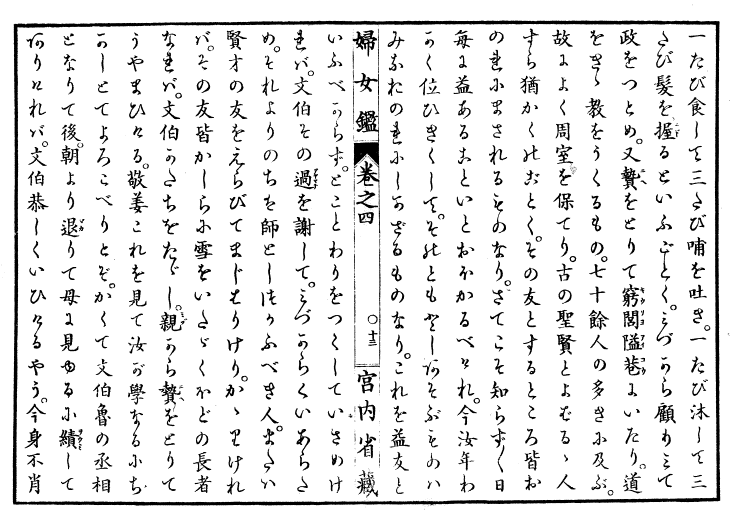 一たび食して三たび哺を吐き。一たび沐して三
たび髮を握るといふごとく。みづから顧りみて
政をつとめ。又贄をとりて窮閭隘巷にいたり。道
をきゝ教をうくるもの。七十餘人の多きに及ぶ。
故によく周室を保てり。古の聖賢とよばるゝ人
すら猶かくのごとく。その友とするところ皆お
のれにまされるものなり。さてこそ知らずしく日
毎に益あることいとおほかるべけれ。今汝年わ
かく位ひきくして。そのともとしあそぶものハ
みなおのれにしかざるものなり。これを益友と
婦女鑑 卷之四 ○十三 宮内省藏
いふべからず。とことわりをつくしていさめけ
れバ。文伯その過を謝して。みづからくいあらた
め。それよりのちを師としつかふべき人。または
賢才の友をえらびてまじはりけり。かゝりけれ
バ。その友皆かしらに雪をいたゞくほどの長者
なれバ。文伯かたちをたゞし。親から贄をとりて
うやまひける。敬姜これを見て汝が學なるにち
かしとてよろこべりとぞ。かくて文伯魯の丞相
となりて後。朝より退りて母に見ゆるに績して
ありけれバ。文伯恭しくいひけるやう。今身不肖